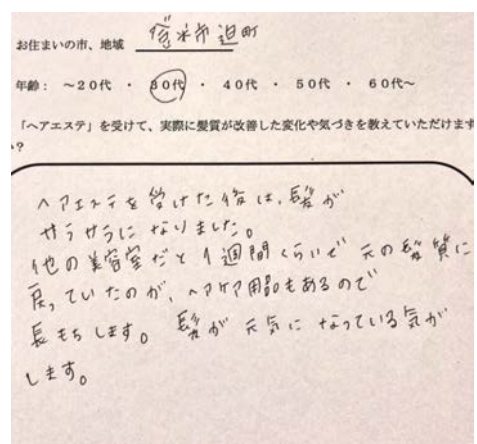 お住まいの市、地域 登米市迫町
年齢： ～20代 ・ 30代 ・ 40代 ・ 50代 ・ 60代～
「ヘアエステ」を受けて、実際に髪質が改善した変化や気づきを教えていただけます
？
ヘアエステを受けた後は、髪が
サラサラになりました。
他の美容室だと1週間くらいで元の髪質に
戻っていたのが、ヘアケア用品もあるので
長もちします。髪が元気になっている気が
します。